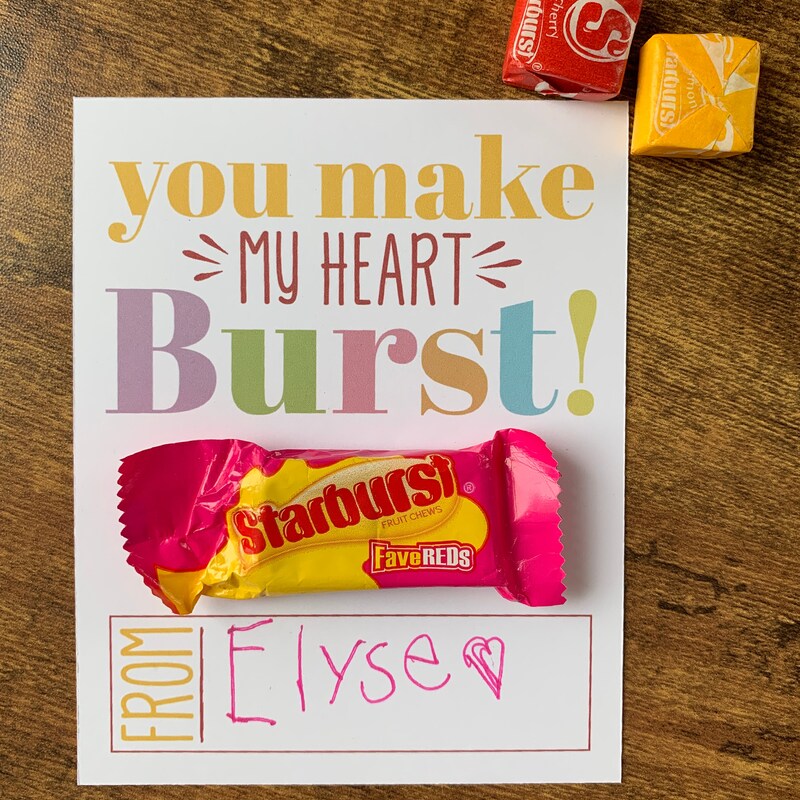 cherry
Starburst®
S
lemon
Starburst
you make
MY HEART
Burst!
Starburst®
FRUIT CHEWS
FaveREDS
FROM Elyse